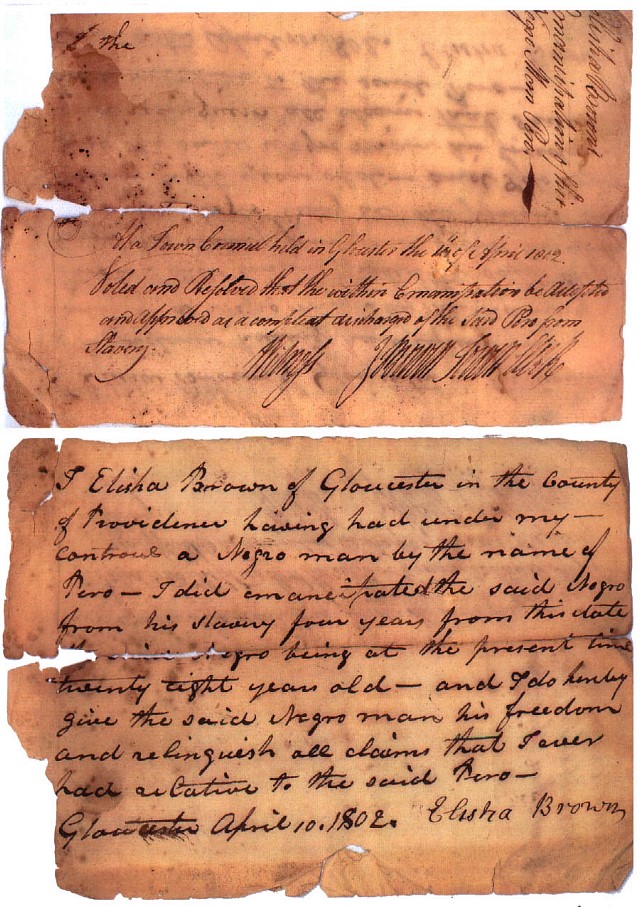 & the
Elisha Browns
Emancipation of his
Negro Man Pero
At a Town Council held in Glocester the of April 1802
Voted and Resolved that the within Emancipation be Accepted
and approved as a compleat discharged of the said Pero from
Slavery
I Elisha Brown of Gloucester in the County
of Providence having had under my—
controul a Negro man by the name of
Pero — I did emancipated the said Negro
from his slavery four years from this date
Negro being at the present time
twenty eight years old — and I do hereby
give the said Negro man his freedom
and relinquish all claims that I ever
had relative to the said Pero —
Gloucester April 10. 1802. Elisha Brown